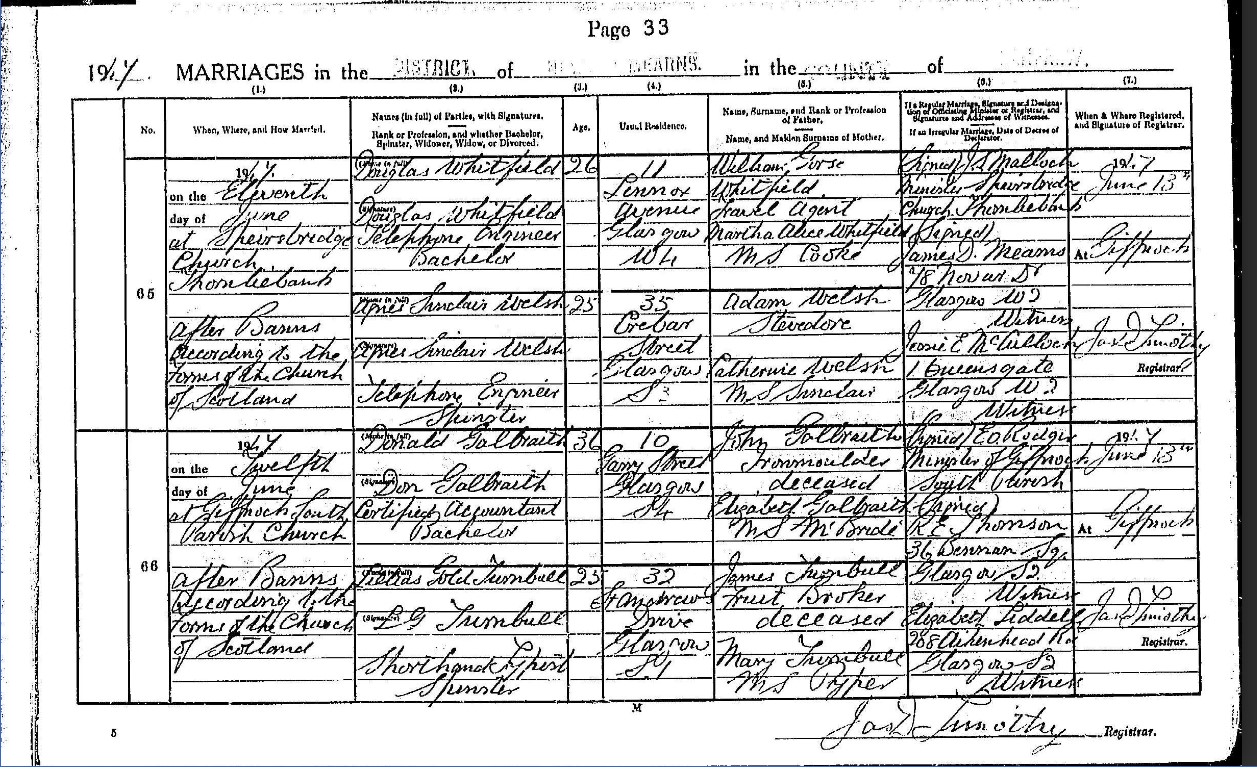 Page 33
1947. MARRIAGES in the DISTRICT. of MEARNS. in the COUNTY of
(1.) (2.) (3.) (4.) (5.) (6.) (7.)
No.
When, Where, and How Married.
Names (in full) of Parties, with Signatures.
Rank or Profession, and whether Bachelor, Spinster, Widower, Widow, or Divorced.
Age.
Usual Residence.
Name, Surname, and Rank or Profession of Father.
Name, and Maiden Surname of Mother.
If a Regular Marriage, Signature and Designation of Officiating Minister or Registrar, and Signatures and Addresses of Witnesses.
If an Irregular Marriage, Date of Decree of Declarator.
When & Where Registered, and Signature of Registrar.
65
1947
on the Eleventh
day of June
at Speirsbridge
Church
Thornliebank
After Banns
According to the
Forms of the Church
of Scotland
(Name in full)
Douglas Whitfield
(Signature)
Douglas Whitfield
Telephone Engineer
Bachelor
26
11
Lennox
Avenue
Glasgow
W4
William Gorse
Whitfield
Travel Agent
Martha Alice Whitfield
M S Cooke
(Signed) J. S. Malloch
Minister Speirsbridge
Church Thornliebank
(Signed)
James D. Mearns
Glasgow W2
Witness
Jessie E McCulloch
1 Queensgate
Glasgow W2
Witness
(Name in full)
Agnes Sinclair Welsh
(Signature)
Agnes Sinclair Welsh
Telephone Engineer
Spinster
25
35
Crebar
Street
Glasgow
S3
Adam Welsh
Stevedore
Catherine Welsh
M S Sinclair
1947
June 13th
At Giffnock
Jas D Timothy
Registrar.
66
1947
on the Twelfth
day of June
at Giffnock South
Parish Church
After Banns
According to the
Forms of the Church
of Scotland
(Name in full)
Donald Galbraith
(Signature)
Don Galbraith
Certified Accountant
Bachelor
36
10
Garry Street
Glasgow
S4
John Galbraith
Ironmoulder
deceased
Elizabeth Galbraith
M S McBride
(Signed)
Minister of Giffnock
South Parish
(Signed)
R. E. Thomson
36 Dennan Sq.
Glasgow S2
Witness
Elizabeth Liddell
268 Aikenhead Rd
Glasgow S2
Witness
(Name in full)
Lillias Gold Turnbull
(Signature)
L G Turnbull
Shorthand Typist
Spinster
25
32
St Andrew's
Drive
Glasgow
S1
James Turnbull
Fruit Broker
deceased
Mary Turnbull
M S Pyper
1947
June 13th
At Giffnock
Jas D Timothy
Registrar.
M
5
Jas D Timothy Registrar.